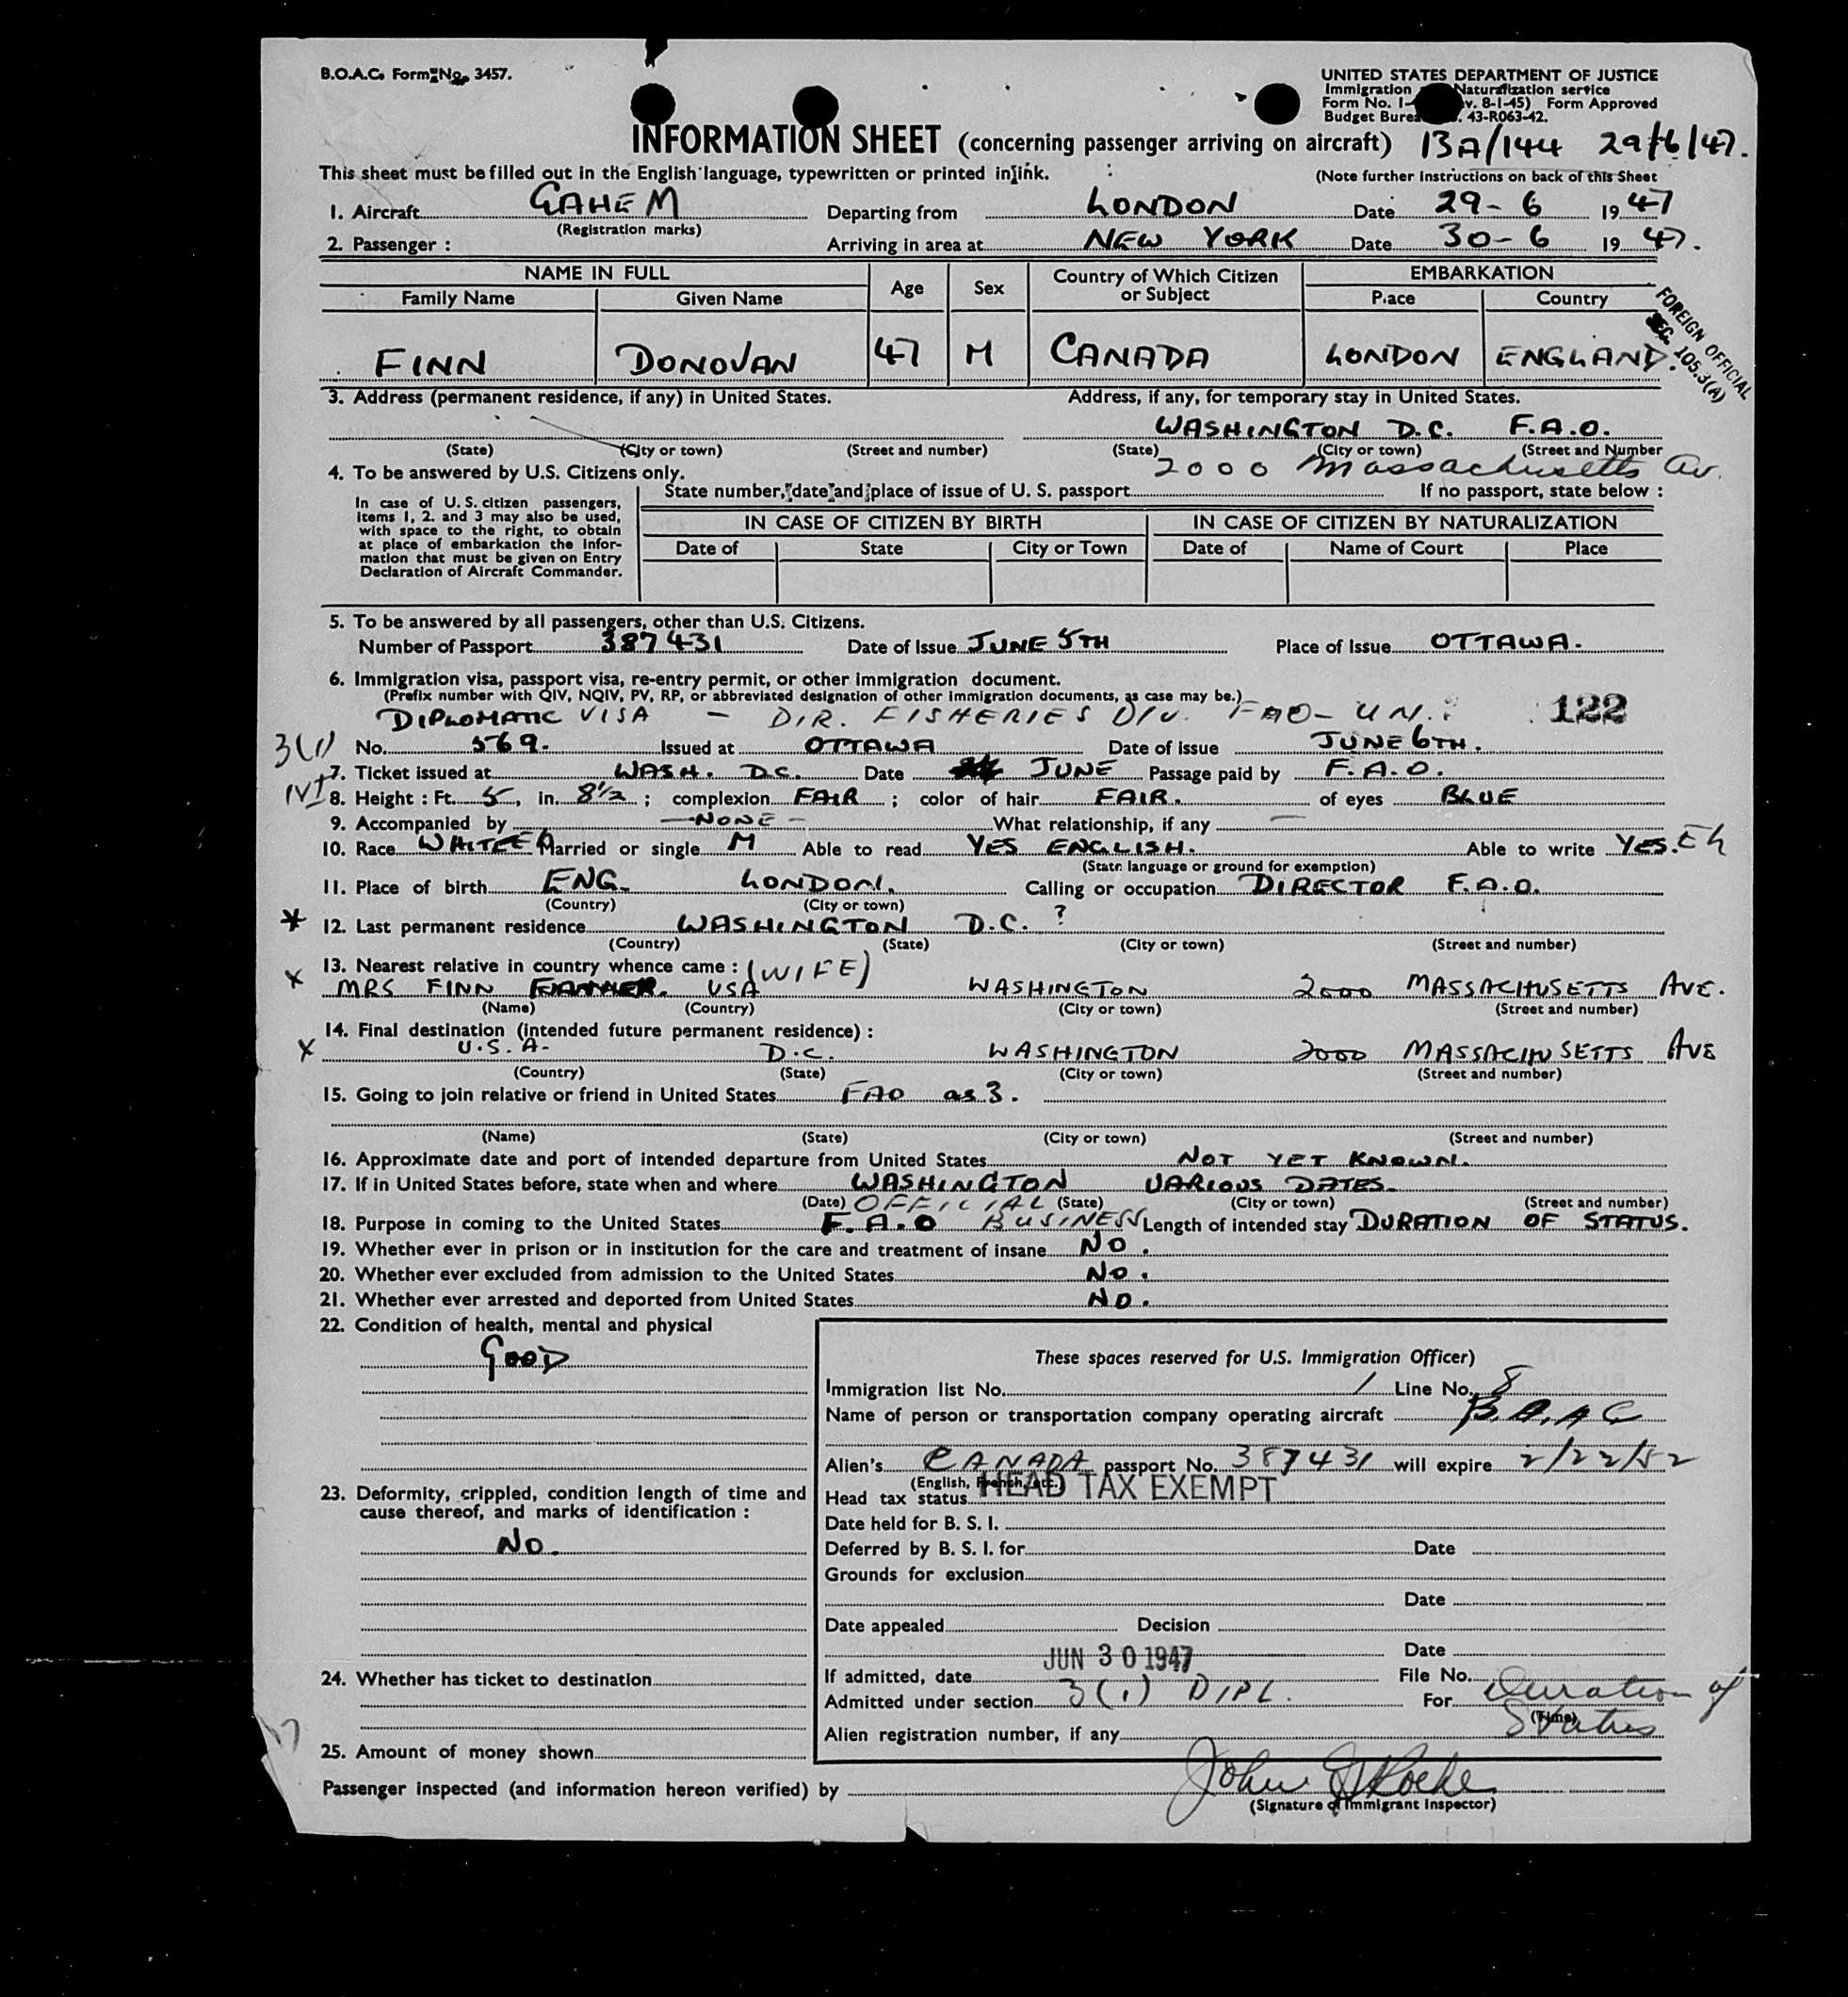 B.O.A.C. Form No. 3457.
UNITED STATES DEPARTMENT OF JUSTICE
Immigration Naturalization service
Form No. I- v. 8-1-45) Form Approved
Budget Burea . 43-R063-42.
INFORMATION SHEET (concerning passenger arriving on aircraft) 13A/144 29/6/47.
This sheet must be filled out in the English language, typewritten or printed in ink. (Note further instructions on back of this Sheet
1. Aircraft GAHEM Departing from LONDON Date 29-6 1947
(Registration marks)
2. Passenger : Arriving in area at NEW YORK Date 30-6 1947.
NAME IN FULL Age Sex Country of Which Citizen or Subject EMBARKATION
Family Name Given Name Place Country
FINN DONOVAN 47 M CANADA LONDON ENGLAND.
FOREIGN OFFICIAL
SEC. 105.3(A)
3. Address (permanent residence, if any) in United States. Address, if any, for temporary stay in United States.
WASHINGTON D.C. F.A.O.
(State) (City or town) (Street and number) (State) (City or town) (Street and Number
2000 Massachusetts Av.
4. To be answered by U.S. Citizens only.
State number, date and place of issue of U. S. passport If no passport, state below :
In case of U. S. citizen passengers,
items 1, 2. and 3 may also be used,
with space to the right, to obtain
at place of embarkation the infor-
mation that must be given on Entry
Declaration of Aircraft Commander.
IN CASE OF CITIZEN BY BIRTH IN CASE OF CITIZEN BY NATURALIZATION
Date of State City or Town Date of Name of Court Place
5. To be answered by all passengers, other than U.S. Citizens.
Number of Passport 387431 Date of Issue JUNE 5TH Place of Issue OTTAWA.
6. Immigration visa, passport visa, re-entry permit, or other immigration document.
(Prefix number with QIV, NQIV, PV, RP, or abbreviated designation of other immigration documents, as case may be.)
DIPLOMATIC VISA - DIR. FISHERIES DIV. FAO-UN. 122
3(1) No. 569. Issued at OTTAWA Date of issue JUNE 6TH.
7. Ticket issued at WASH. D.C. Date JUNE Passage paid by F.A.O.
8. Height : Ft. 5, in. 8½ ; complexion FAIR ; color of hair FAIR. of eyes BLUE
9. Accompanied by —NONE— What relationship, if any —
10. Race WHITE Married or single M Able to read YES ENGLISH. Able to write YES.
(State language or ground for exemption)
11. Place of birth ENG. LONDON. Calling or occupation DIRECTOR F.A.O.
(Country) (City or town)
* 12. Last permanent residence WASHINGTON D.C. ?
(Country) (State) (City or town) (Street and number)
13. Nearest relative in country whence came : (WIFE)
x MRS FINN USA WASHINGTON 2000 MASSACHUSETTS AVE.
(Name) (Country) (City or town) (Street and number)
14. Final destination (intended future permanent residence) :
x U.S.A. D.C. WASHINGTON 2000 MASSACHUSETTS AVE
(Country) (State) (City or town) (Street and number)
15. Going to join relative or friend in United States FAO as 3.
(Name) (State) (City or town) (Street and number)
16. Approximate date and port of intended departure from United States NOT YET KNOWN.
17. If in United States before, state when and where WASHINGTON VARIOUS DATES.
(Date) (State) (City or town) (Street and number)
OFFICIAL
18. Purpose in coming to the United States F.A.O BUSINESS Length of intended stay DURATION OF STATUS.
19. Whether ever in prison or in institution for the care and treatment of insane NO.
20. Whether ever excluded from admission to the United States NO.
21. Whether ever arrested and deported from United States NO.
22. Condition of health, mental and physical
GOOD
23. Deformity, crippled, condition length of time and
cause thereof, and marks of identification :
NO.
24. Whether has ticket to destination
25. Amount of money shown
These spaces reserved for U.S. Immigration Officer)
Immigration list No. 1 Line No. 8
Name of person or transportation company operating aircraft B.O.A.C
Alien's CANADA passport No. 387431 will expire 2/22/52
(English, French, etc.)
Head tax status HEAD TAX EXEMPT
Date held for B. S. I.
Deferred by B. S. I. for Date
Grounds for exclusion
Date
Date appealed Decision
Date
If admitted, date JUN 30 1947 File No.
Admitted under section 3(1) DIPL. For Duration of Status
(Time)
Alien registration number, if any
Passenger inspected (and information hereon verified) by John
(Signature of Immigrant Inspector)